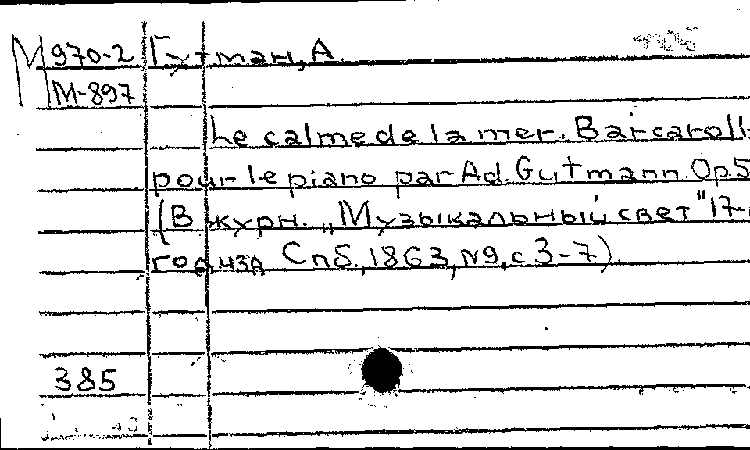 М 970-2 Гутман, А.
М-897
Le calme de la mer. Barcaroll
pour le piano par Ad. Gutmann. Op.5
(В журн. „Музыкальный свет" 17-
год изд Спб, 1863, №9, с 3-7).
385